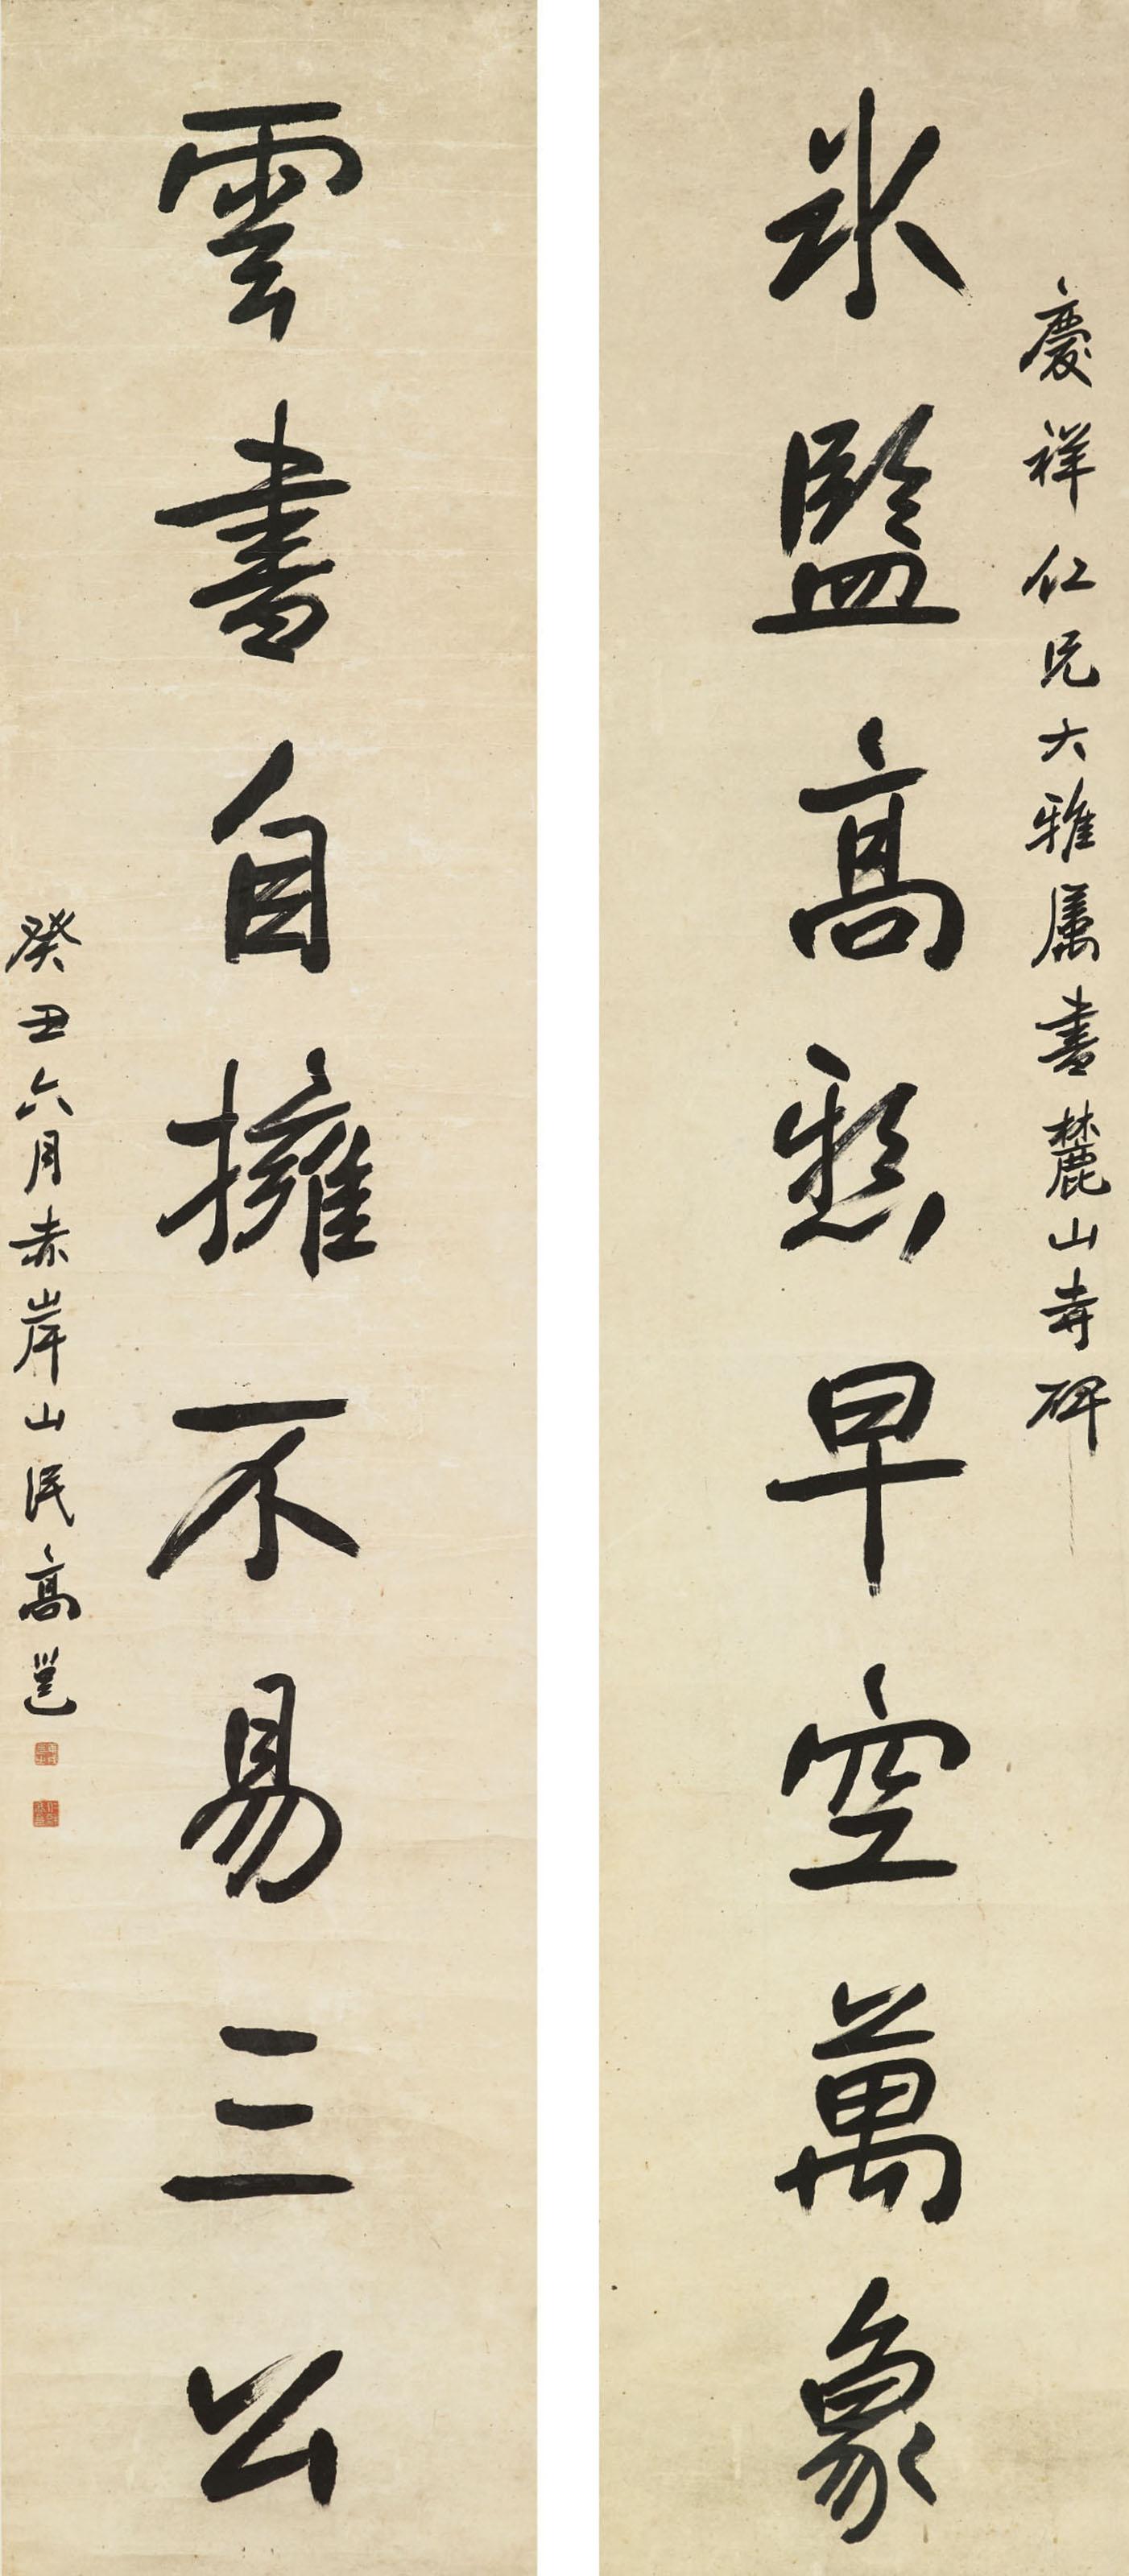 慶祥仁兄大雅属書麓山寺碑
冰監高懸早空萬象
雲書自擁不易三公
癸丑六月赤岸山民高邕